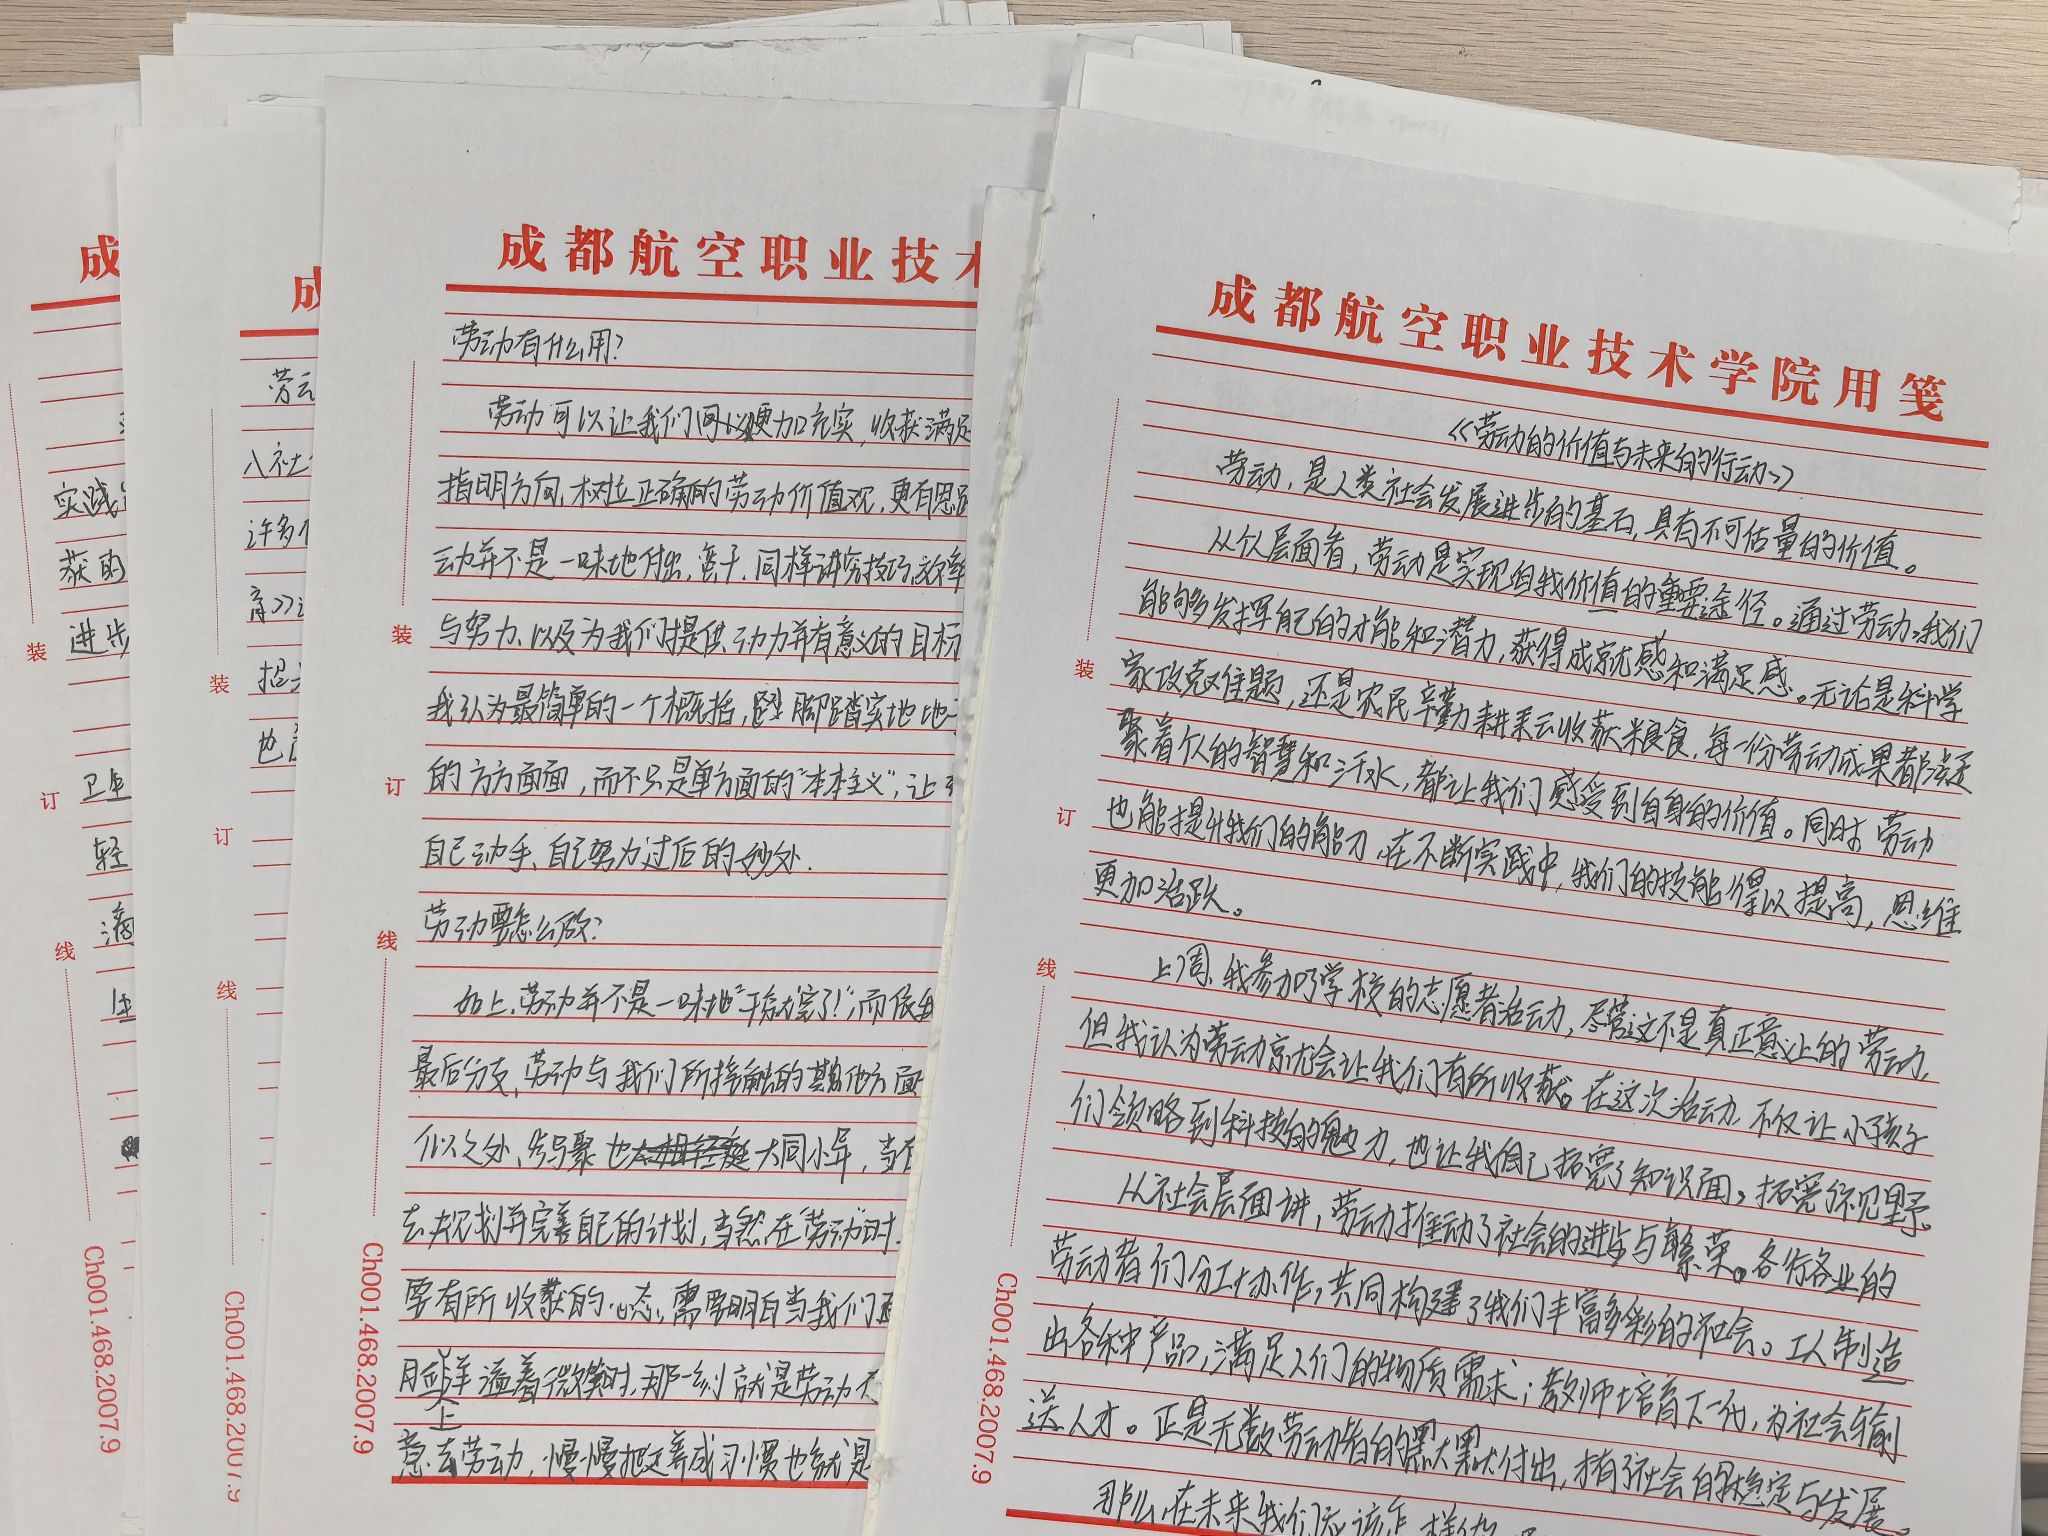 成
实践
获的
进步
卫生
轻
滴
装
订
线
Ch001.468.2007.9
成
劳动
入社
许多
育》
把
也
装
订
线
Ch001.468.2007.9
成都航空职业技术
劳动有什么用?
劳动可以让我们更加充实,收获满足
指明方向,树立正确的劳动价值观,更有
动并不是一味地付出,苦干.同样讲究技巧、效率
与努力、以及为我们提供动力并有意义的目标
我认为最简单的一个概括,脚踏实地地
的方方面面,而不只是单方面的“本本主义”,让
自己动手、自己努力过后的妙处.
劳动要怎么做?
如上,劳动并不是一味地“干就完了!”,而
最后分支、劳动与我们所接触的其他方面
似之处、 也大同小异,当
去规划并完善自己的计划,当然,在“劳动”时.
要有所收获的心态,需要明白当我们
脸上洋溢着微笑时,那一刻就是劳动
意去劳动,慢慢把这养成习惯也就是
装
订
线
Ch001.468.2007.9
成都航空职业技术学院用笺
《劳动的价值与未来的行动》
劳动,是人类社会发展进步的基石,具有不可估量的价值。
从个人层面看,劳动是实现自我价值的重要途径。通过劳动,我们
能够发挥自己的才能和潜力,获得成就感和满足感。无论是科学
家攻克难题,还是农民辛勤耕耘收获粮食,每一份劳动成果都凝
聚着个人的智慧和汗水,都让我们感受到自身的价值。同时,劳动
也能提升我们的能力,在不断实践中,我们的技能得以提高,思维
更加活跃。
上周,我参加了学校的志愿者活动,尽管这不是真正意义上的劳动,
但我认为劳动就会让我们有所收获。在这次活动,不仅让小孩子
们领略到科技的魅力,也让我自己拓宽了知识面,拓宽了视野。
从社会层面讲,劳动推动了社会的进步与繁荣。各行各业的
劳动者们分工协作,共同构建了我们丰富多彩的社会。工人制造
出各种产品,满足人们的物质需求;教师培育下一代,为社会输
送人才。正是无数劳动者的默默付出,才有了社会的稳定与发展。
那么,在未来我们应该怎样做
装
订
线
Ch001.468.2007.9